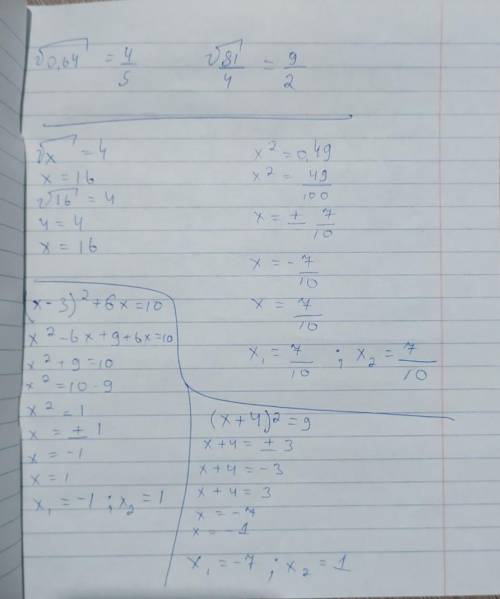 √0,64 = 4/5
√81/4 = 9/2
√x = 4
x = 16
√16 = 4
4 = 4
x = 16
x² = 0,49
x² = 49/100
x = ± 7/10
x = - 7/10
x = 7/10
x₁ = 7/10 ; x₂ = 7/10
(x - 3)² + 6x = 10
x² - 6x + 9 + 6x = 10
x² + 9 = 10
x² = 10 - 9
x² = 1
x = ± 1
x = -1
x = 1
x₁ = -1 ; x₂ = 1
(x + 4)² = 9
x + 4 = ± 3
x + 4 = -3
x + 4 = 3
x = -7
x = -1
x₁ = -7 ; x₂ = 1